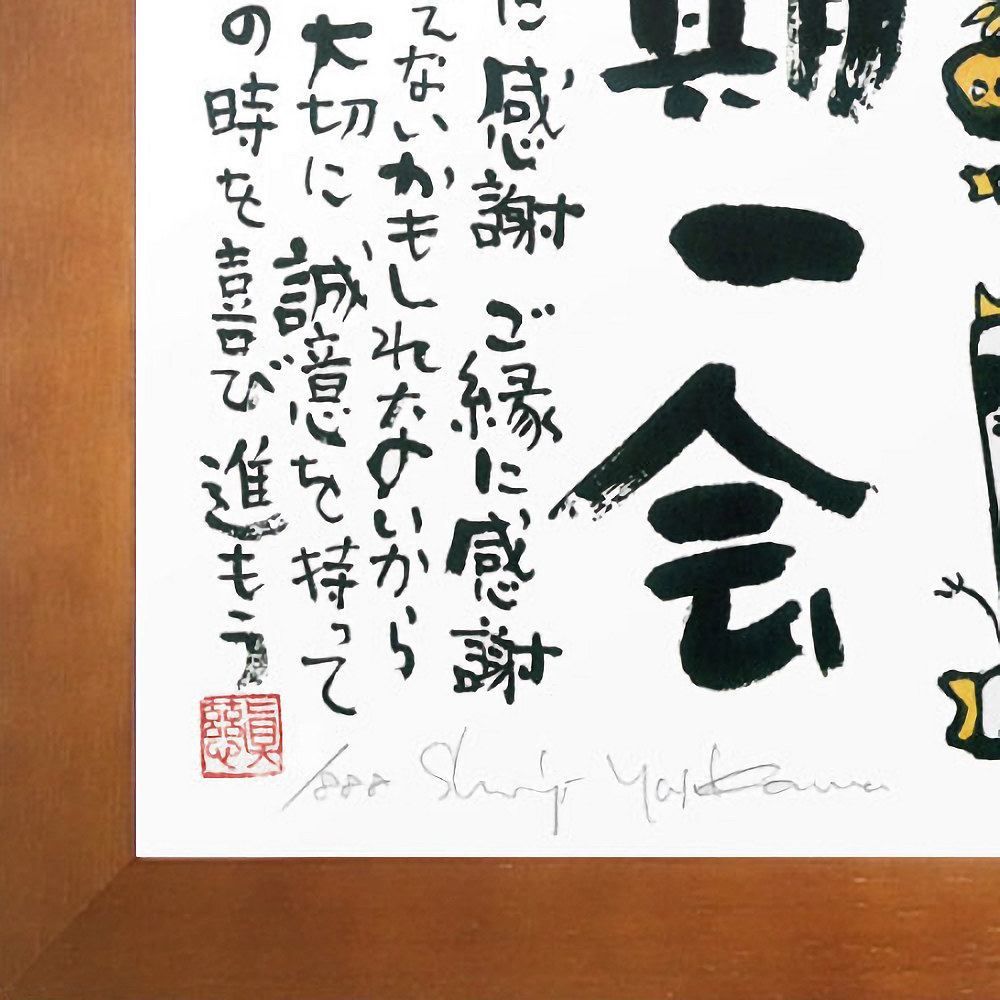 期一会
に感謝 ご縁に感謝
えないかもしれないから
大切に 誠意を持って
の時を喜び進もう
/888 Shinji Yoshikawa